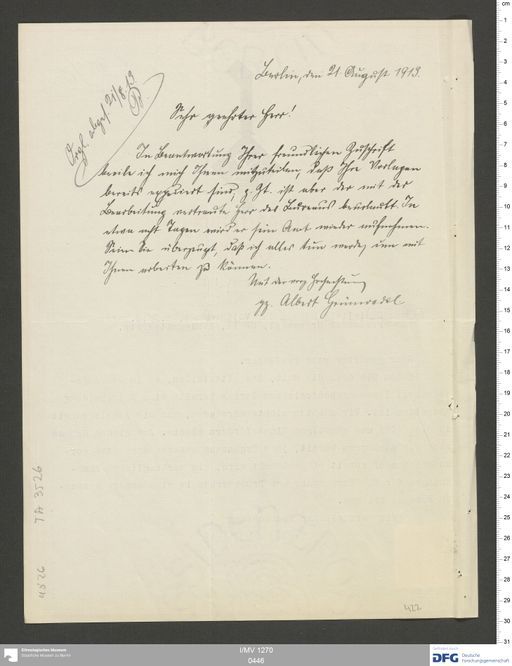 Berlin, den 21 August 1913.
Orgl. abges. 21/8.13
Sehr geehrter Herr!
In Beantwortung Ihrer freundlichen Zuschrift
beeile ich mich Ihnen mitzuteilen, daß Ihre Vorlagen
bereits expediert sind, z. Zt. ist aber der mit der
Bearbeitung vertraute Herr des Bureaus beurlaubt. In
etwa acht Tagen wird er sein Amt wieder aufnehmen.
Seien Sie überzeugt, daß ich alles tun werde, um mit
Ihnen arbeiten zu können.
Mit der vorz. Hochachtung
gz. Albert Grünwedel
TA 3526
4826
422
Ethnologisches Museum
Staatliche Museen zu Berlin
I/MV 1270
0446
DFG
Deutsche
Forschungsgemeinschaft